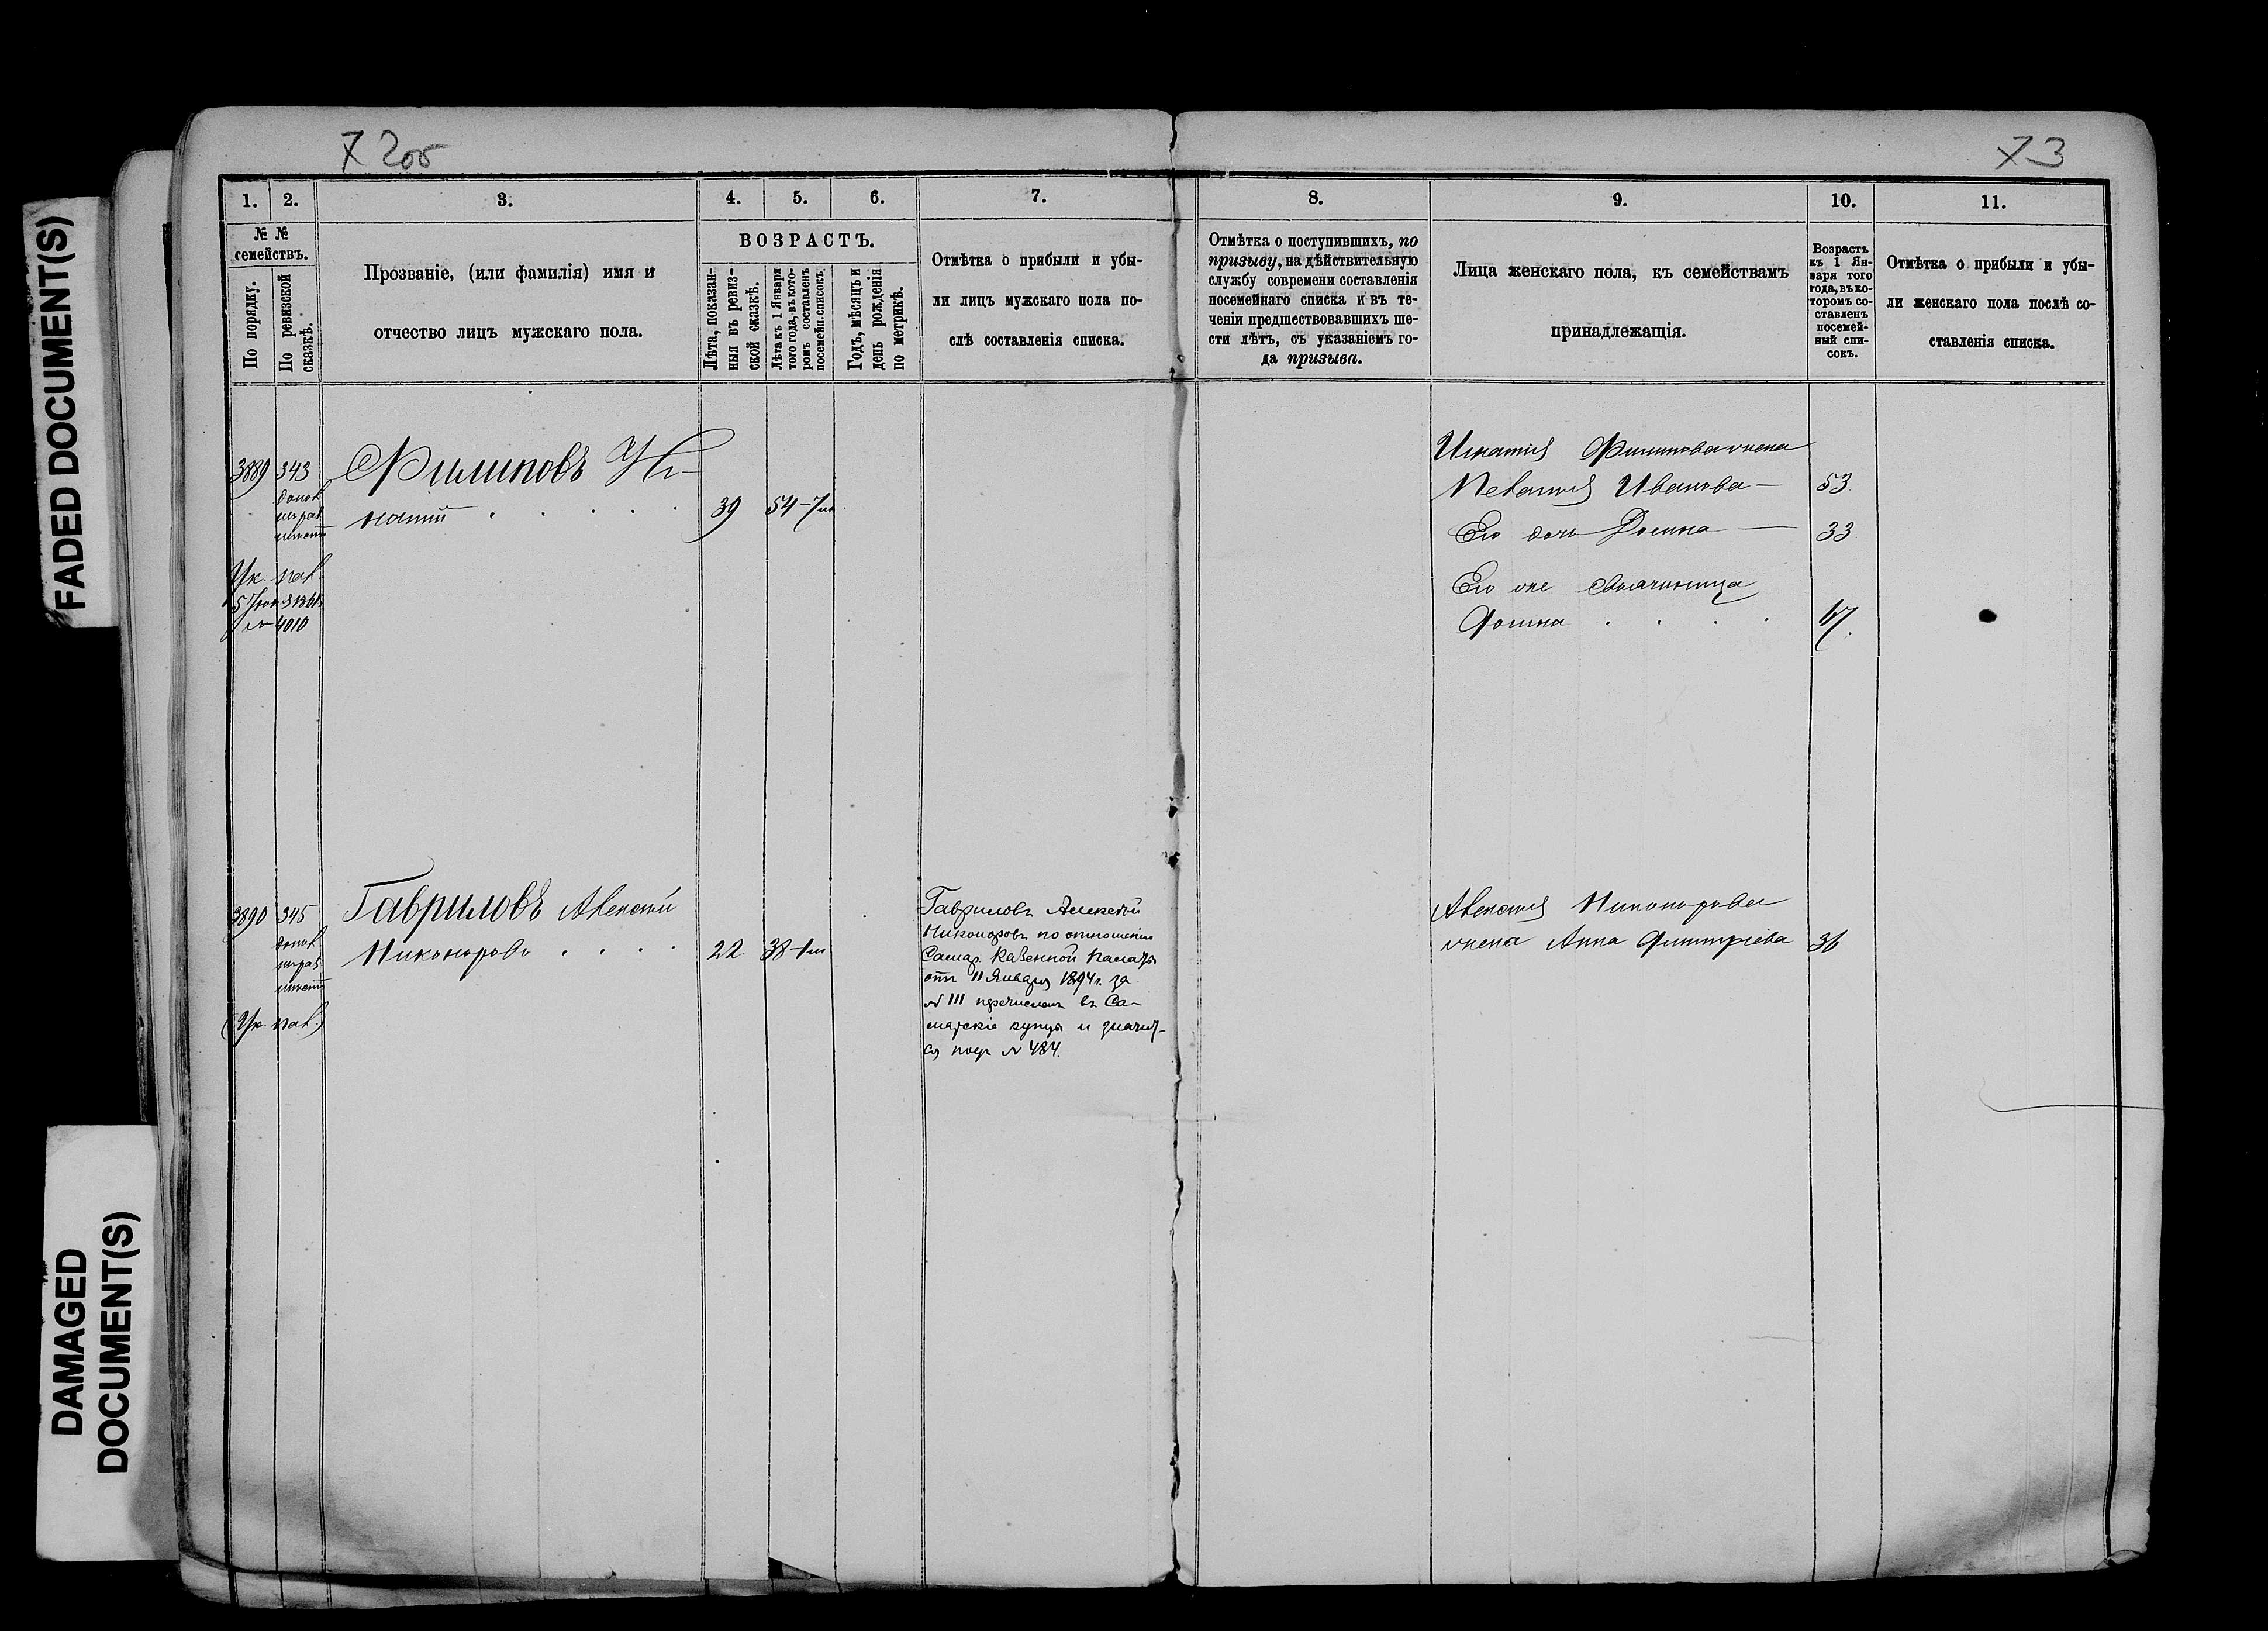 FADED DOCUMENT(S)
DAMAGED
DOCUMENT(S)
73
1.
2.
3.
4.
5.
6.
7.
8.
9.
10.
11.
№ №
семействъ.
По порядку.
По ревизской
сказкѣ.
Прозваніе, (или фамилія) имя и
отчество лицъ мужскаго пола.
ВОЗРАСТЪ.
Лѣта, показан-
ныя въ ревиз-
ской сказкѣ.
Лѣта къ 1 Января
того года, въ кото-
ромъ составленъ
посемейн. списокъ.
Годъ, мѣсяцъ и
день рожденія
по метрикѣ.
Отмѣтка о прибыли и убы-
ли лицъ мужскаго пола по-
слѣ составленія списка.
Отмѣтка о поступившихъ, по
призыву, на дѣйствительную
службу современи составленія
посемейнаго списка и въ те-
ченіи предшествовавшихъ ше-
сти лѣтъ, съ указаніемъ го-
да призыва.
Лица женскаго пола, къ семействамъ
принадлежащія.
Возрастъ
къ 1 Ян-
варя того
года, въ ко-
торомъ со-
ставленъ
посемей-
ный спи-
сокъ.
Отмѣтка о прибыли и убы-
ли женскаго пола послѣ со-
ставленія списка.
3889 343
Филиповъ Иг-
натій 39 54
Игнатія Филипова жена
Иванова 53
Его дочь 33
Его же
17
4010
3890 345
Гавриловъ Алексѣй
Никоноровъ 22 38
Гавриловъ Алексѣй
Никоноровъ по отношенію
Самар. Казенной Палаты
отъ 11 Января 1894 г. за
№ 111 перечисленъ въ Са-
марскіе купцы и значит-
ся подъ № 484.
Алексѣя Никонорова
жена Анна Дмитріева 36